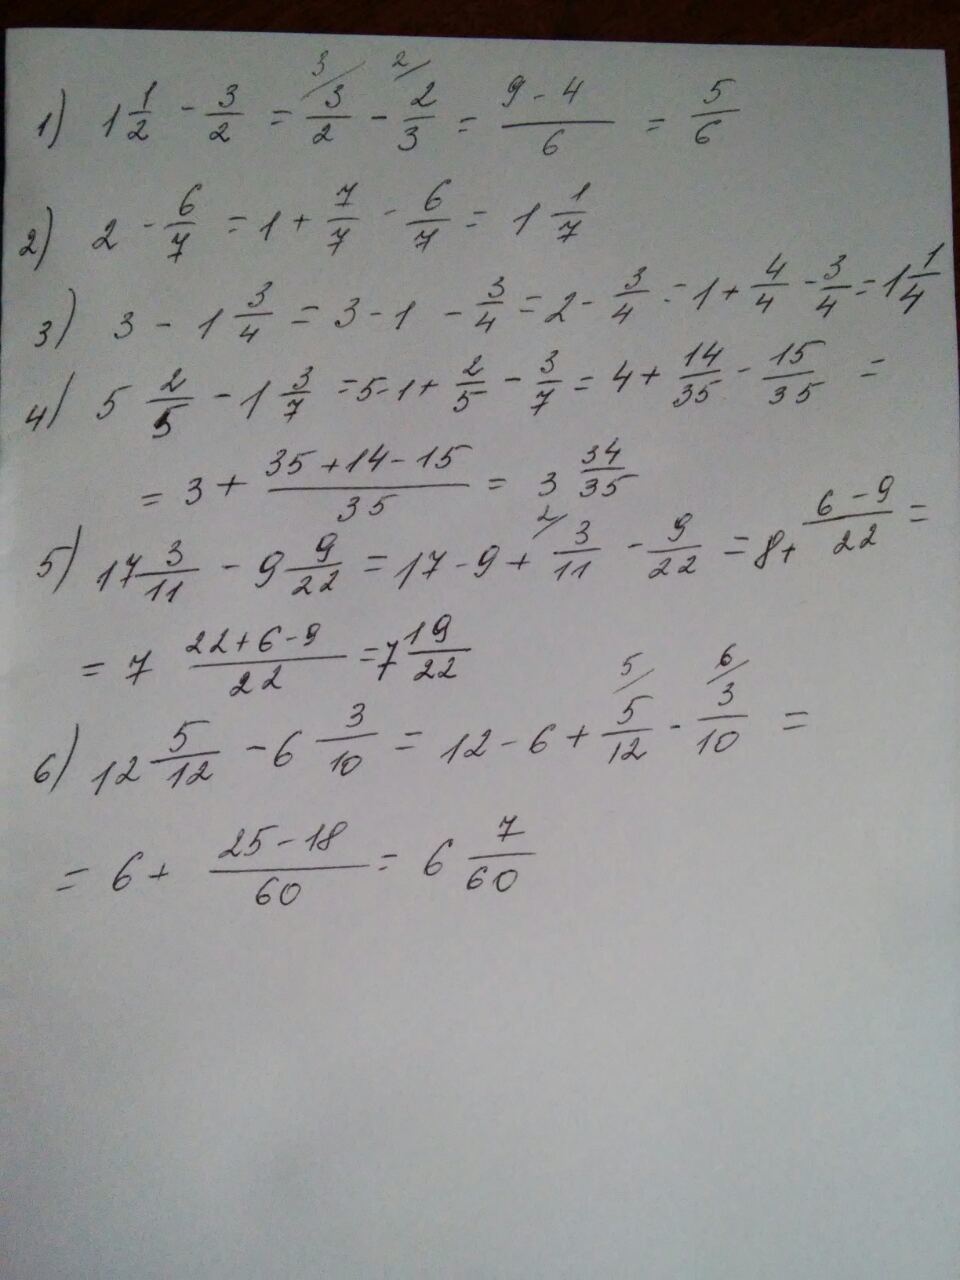 1) 1 1/2 - 3/2 = 3/ 3/2 - 2/ 2/3 = (9-4)/6 = 5/6
2) 2 - 6/7 = 1 + 7/7 - 6/7 = 1 1/7
3) 3 - 1 3/4 = 3-1 - 3/4 = 2 - 3/4 = 1 + 4/4 - 3/4 = 1 1/4
4) 5 2/5 - 1 3/7 = 5-1 + 2/5 - 3/7 = 4 + 14/35 - 15/35 =
= 3 + (35+14-15)/35 = 3 34/35
5) 17 3/11 - 9 9/22 = 17-9 + 2/ 3/11 - 9/22 = 8 + (6-9)/22 =
= 7 (22+6-9)/22 = 7 19/22
6) 12 5/12 - 6 3/10 = 12-6 + 5/ 5/12 - 6/ 3/10 =
= 6 + (25-18)/60 = 6 7/60